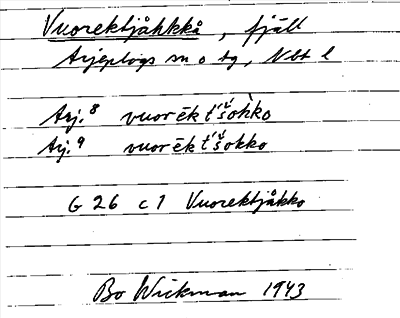 Vuorektjåhkkå, fjäll
Arjeplogs sn o tg, Nbt l
Arj.⁸ vuorēkt́šòhko
Arj.⁹ vuorēkt́šokko
G 26 c 1 Vuorektjåkko
Bo Wickman 1943